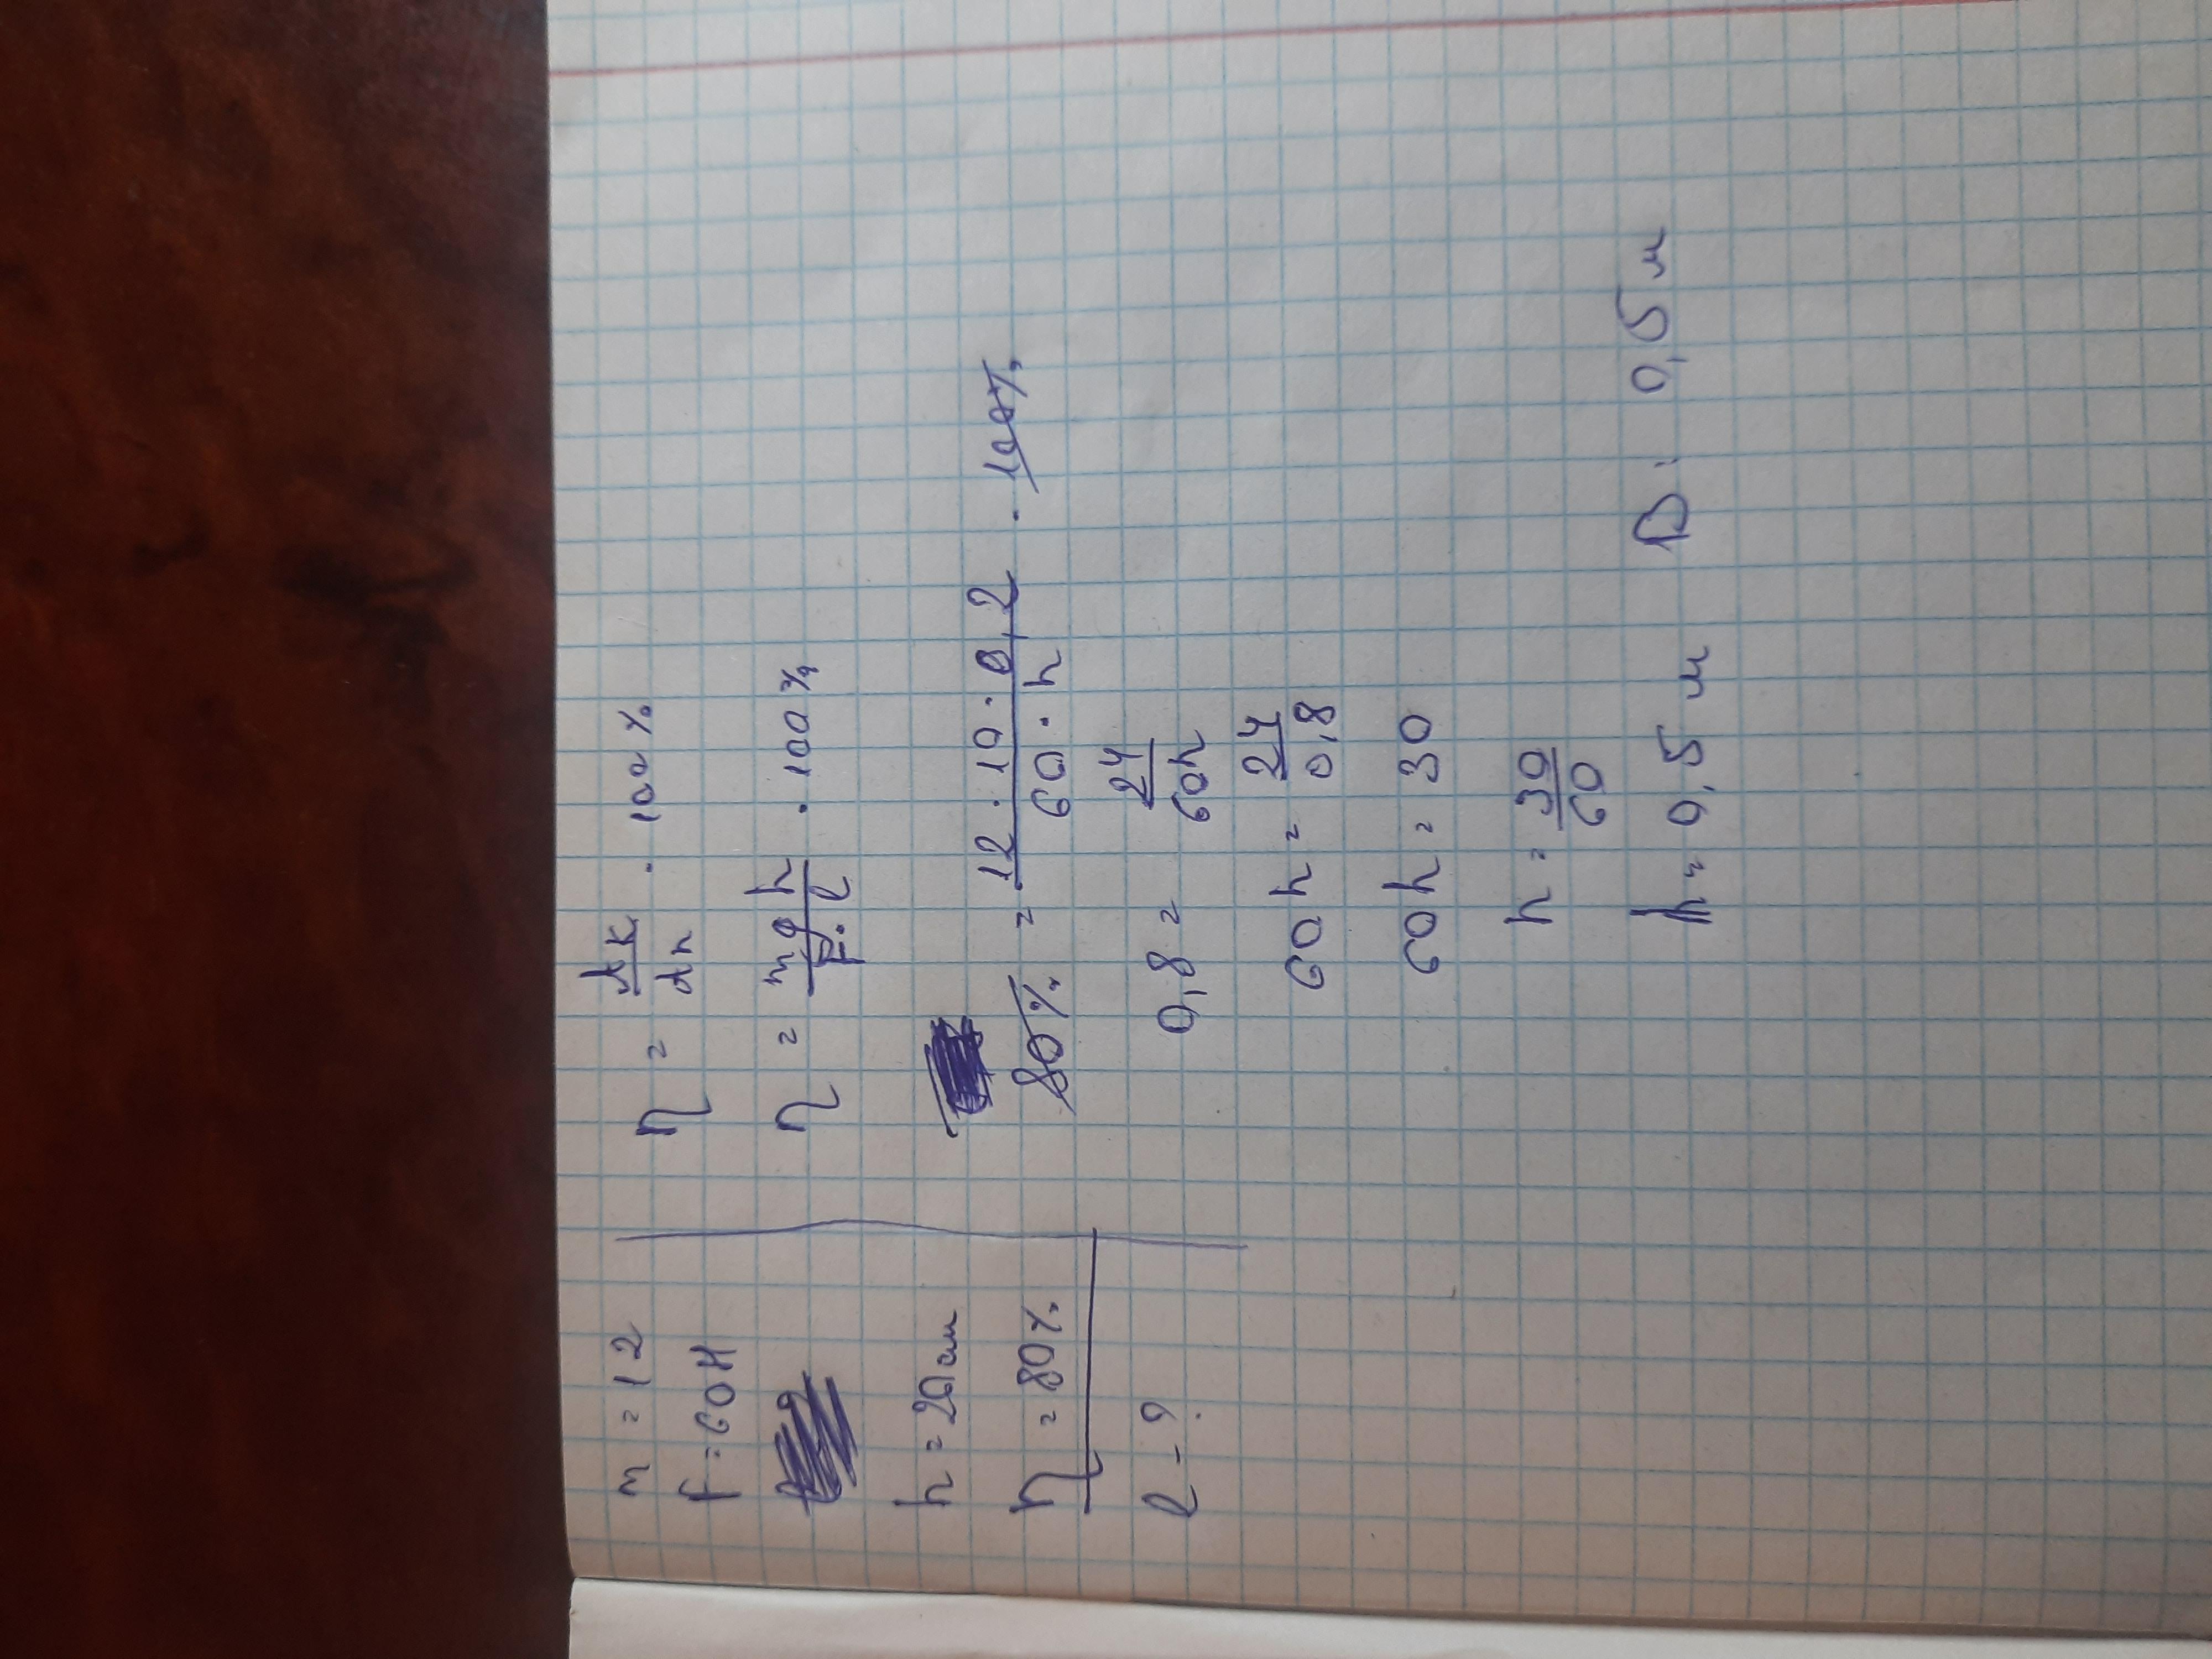 m = 12
F = 60 Н
h = 20 см
η = 80%
l - ?
η = Aк/Aп · 100%
η = mgh/F·l · 100%
80% = 12 · 10 · 0,2/60 · h · 100%
0,8 = 24/60h
60h = 24/0,8
60h = 30
h = 30/60
h = 0,5 м
В: 0,5 м